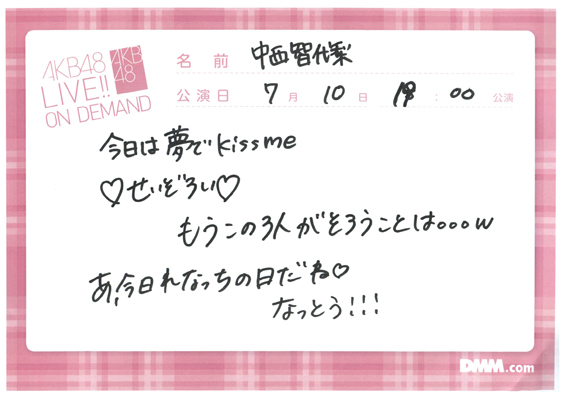 AKB48
LIVE!!
ON DEMAND
AKB
48
名前 中西智代梨
公演日 7月 10日 18:00 公演
今日は夢でkiss me
♡せいぞろい♡
もうこの3人がそろうことは。。。w
あ、今日れなっちの日だね♡
なっとう!!!
DMM.com